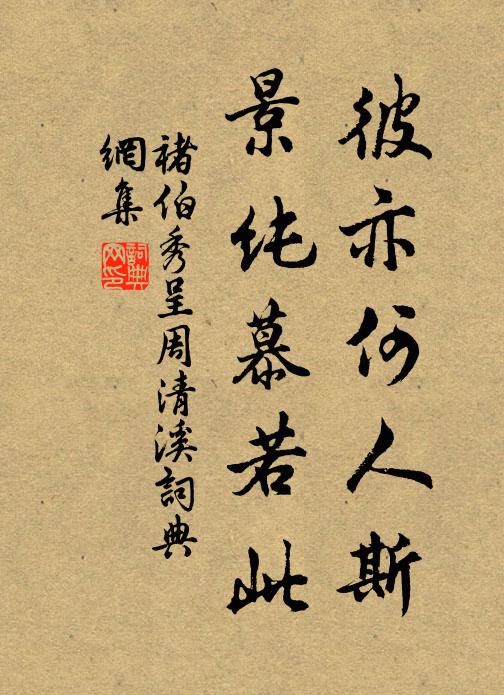 彼亦何人斯
景纯慕若此
褚伯秀呈周清溪詞典
網集
詞典
网印